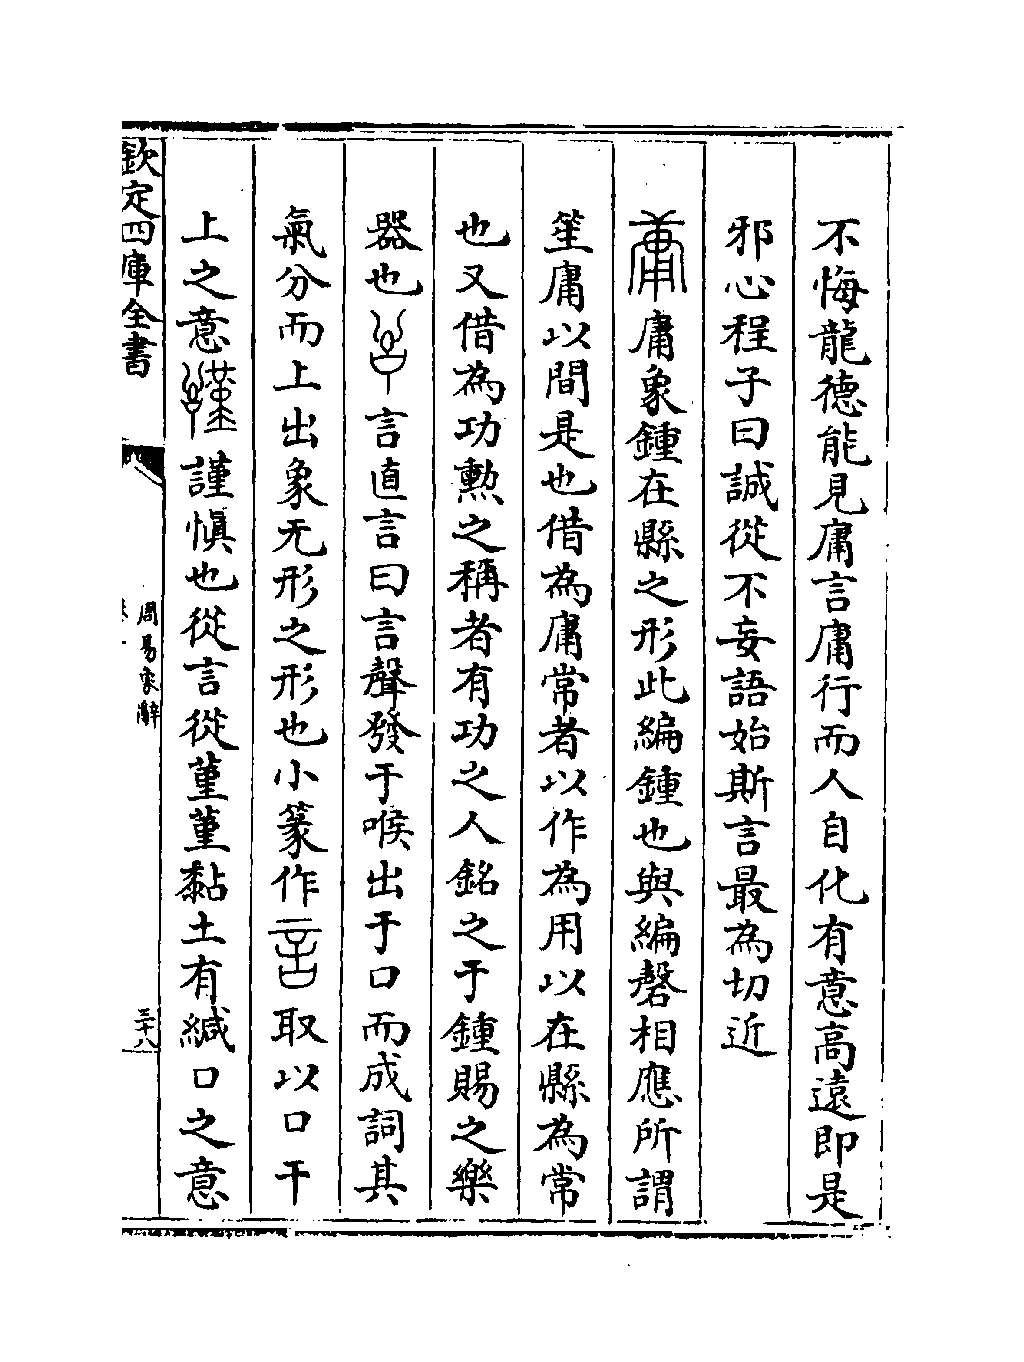 不悔龍德能見庸言庸行而人自化有意高遠即是
邪心程子曰誠從不妄語始斯言最為切近
庸象鍾在縣之形此編鍾也與編磬相應所謂
笙庸以間是也借為庸常者以作為用以在縣為常
也又借為功勲之稱者有功之人銘之于鍾賜之樂
器也言直言曰言聲發于喉出于口而成詞其
氣分而上出象无形之形也小篆作取以口干
上之意謹慎也從言從堇堇黏土有緘口之意
欽定四庫全書
周易象辭
三十八